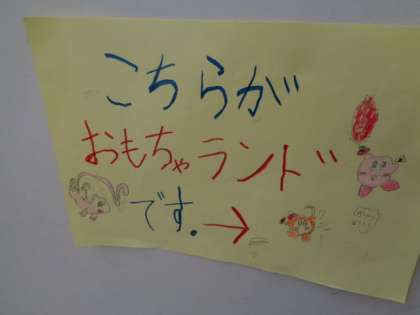 こちらが
おもちゃランド
です.→